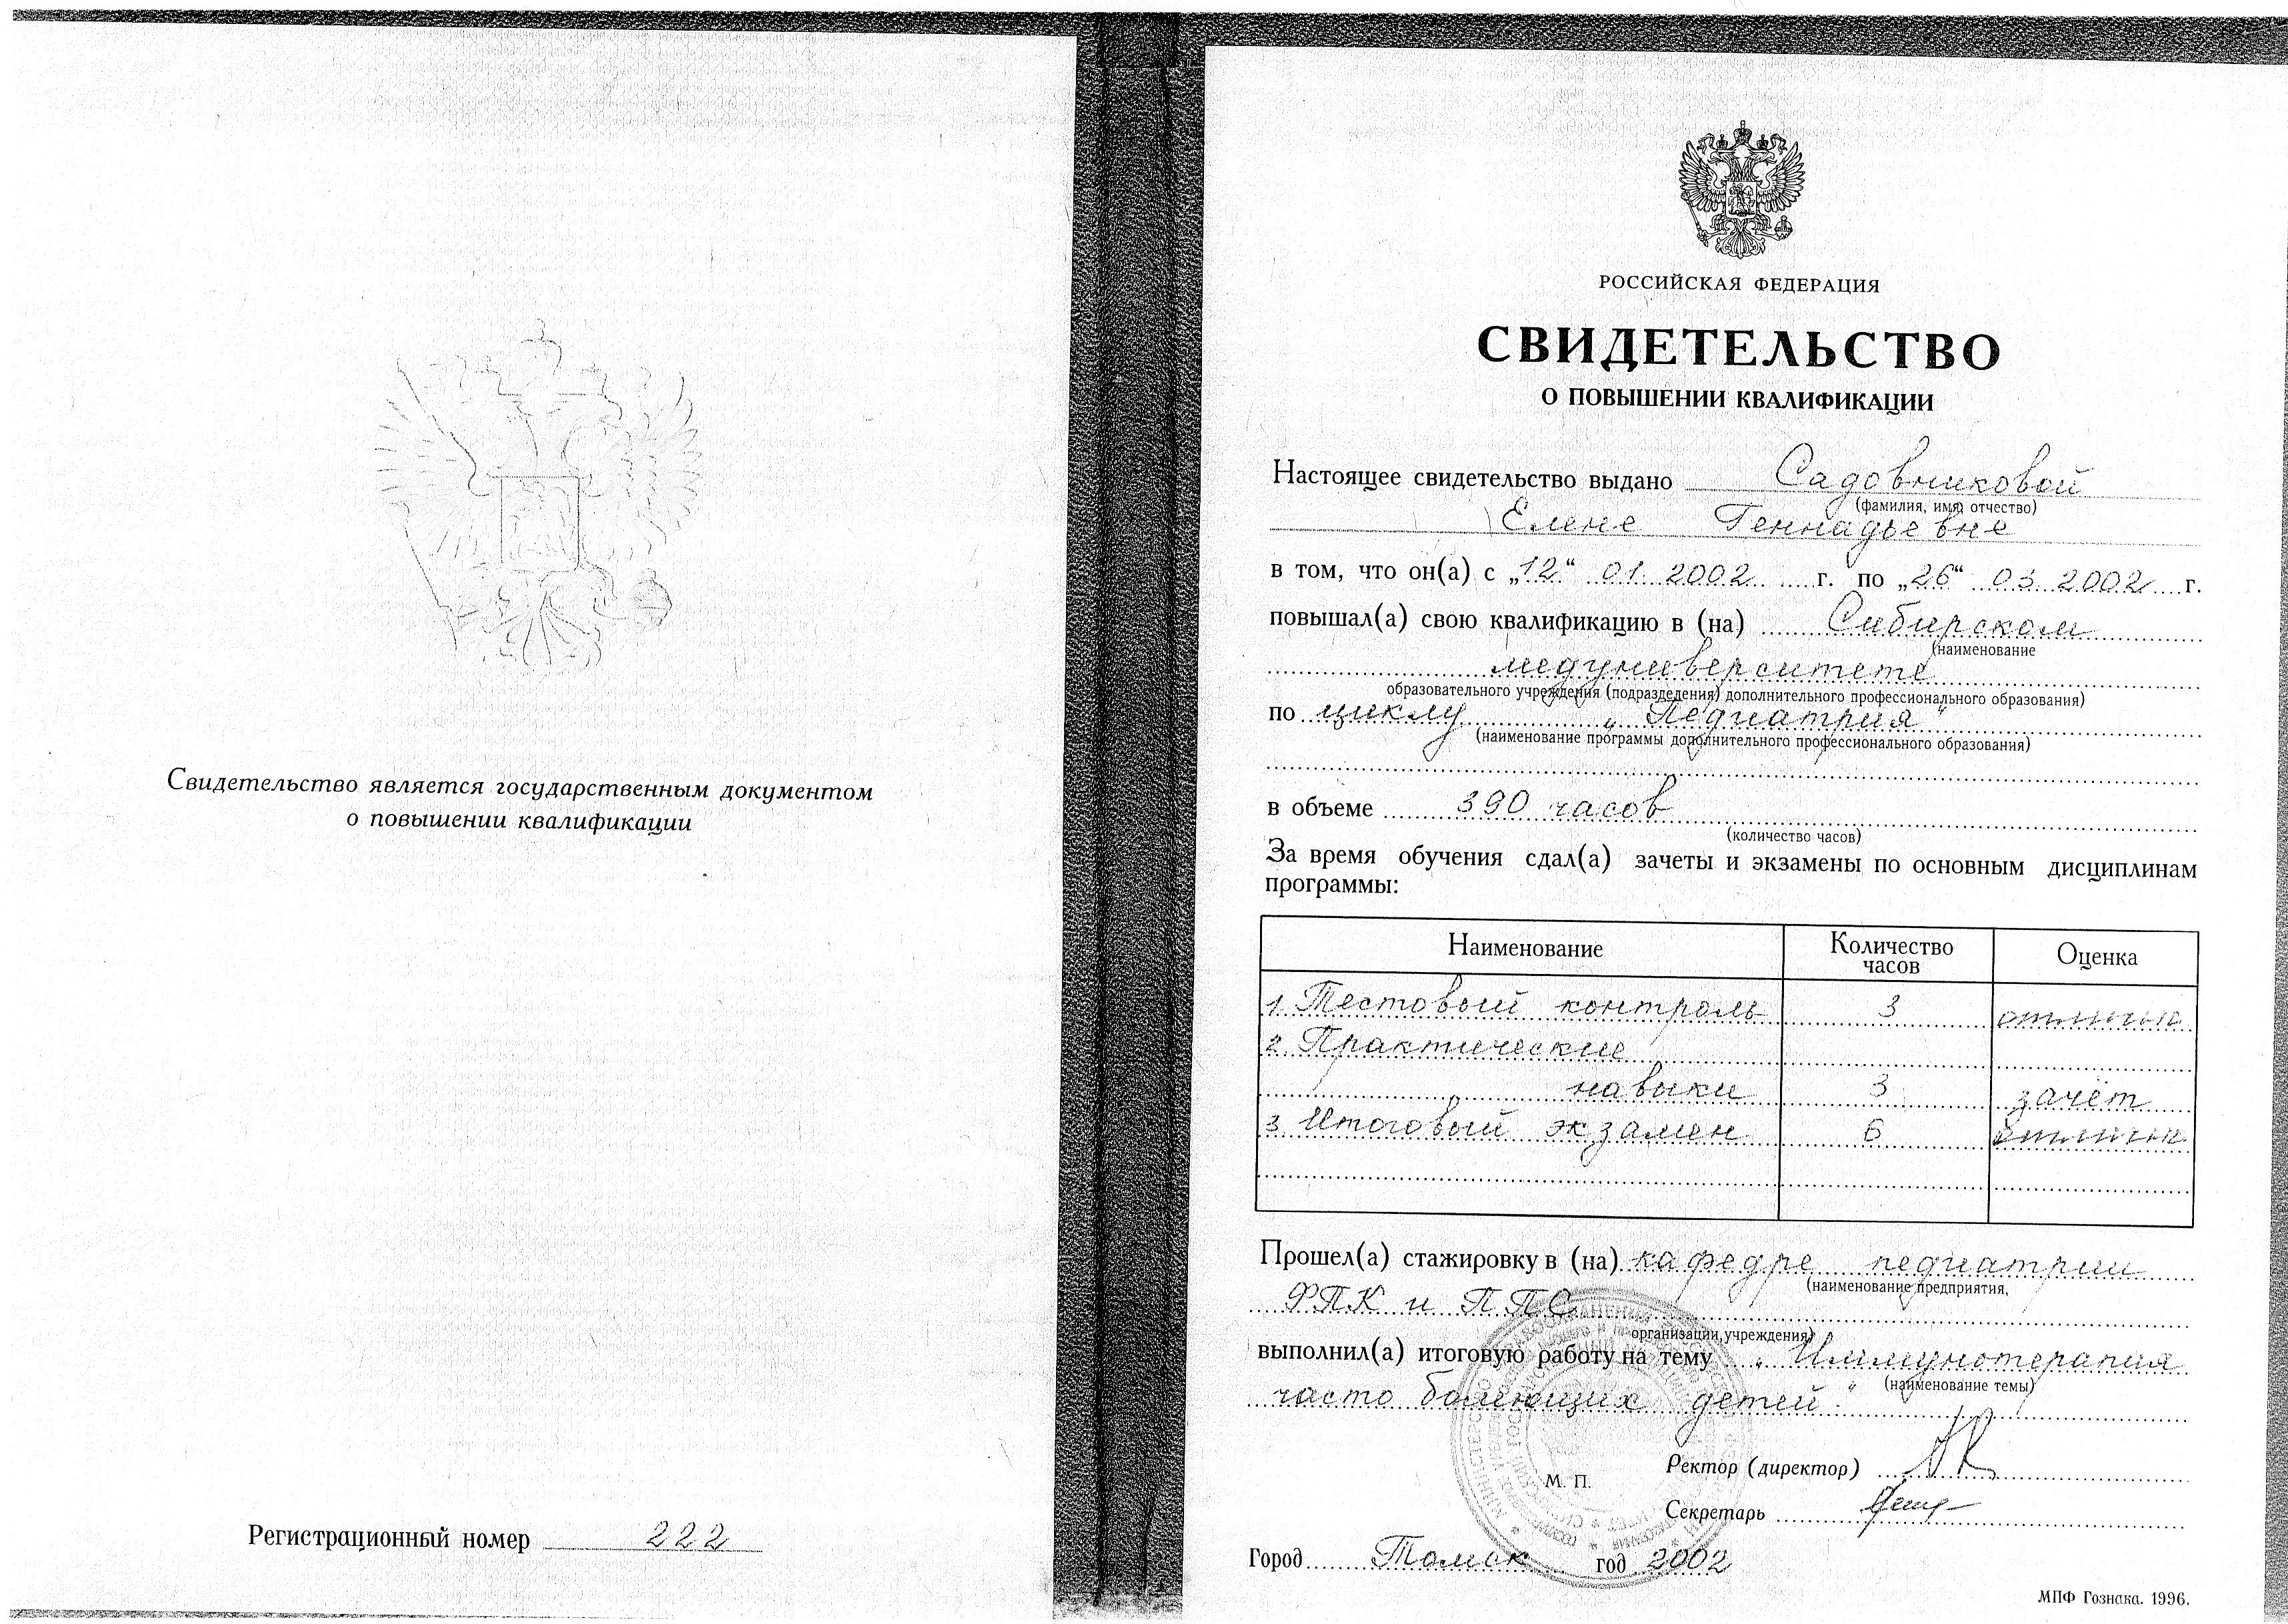 Свидетельство является государственным документом
о повышении квалификации
Регистрационный номер 222
РОССИЙСКАЯ ФЕДЕРАЦИЯ
СВИДЕТЕЛЬСТВО
О ПОВЫШЕНИИ КВАЛИФИКАЦИИ
Настоящее свидетельство выдано Садовниковой
(фамилия, имя, отчество)
Елене Геннадьевне
в том, что он(а) с „12“ 01. 2002 г. по „26“ 03. 2002 г.
повышал(а) свою квалификацию в (на) Сибирском
(наименование
медуниверситете
образовательного учреждения (подразделения) дополнительного профессионального образования)
по циклу „Педиатрия“
(наименование программы дополнительного профессионального образования)
в объеме 390 часов
(количество часов)
За время обучения сдал(а) зачеты и экзамены по основным дисциплинам
программы:
Наименование Количество часов Оценка
1. Тестовый контроль 3 отлично
2. Практические
навыки 3 зачёт
3. Итоговый экзамен 6 отлично
Прошел(а) стажировку в (на) кафедре педиатрии
(наименование предприятия,
ФПК и ППС
организации, учреждения)
выполнил(а) итоговую работу на тему „Иммунотерапия
(наименование темы)
часто болеющих детей“.
Ректор (директор)
М. П.
Секретарь
Город Томск год 2002
МПФ Гознака. 1996.